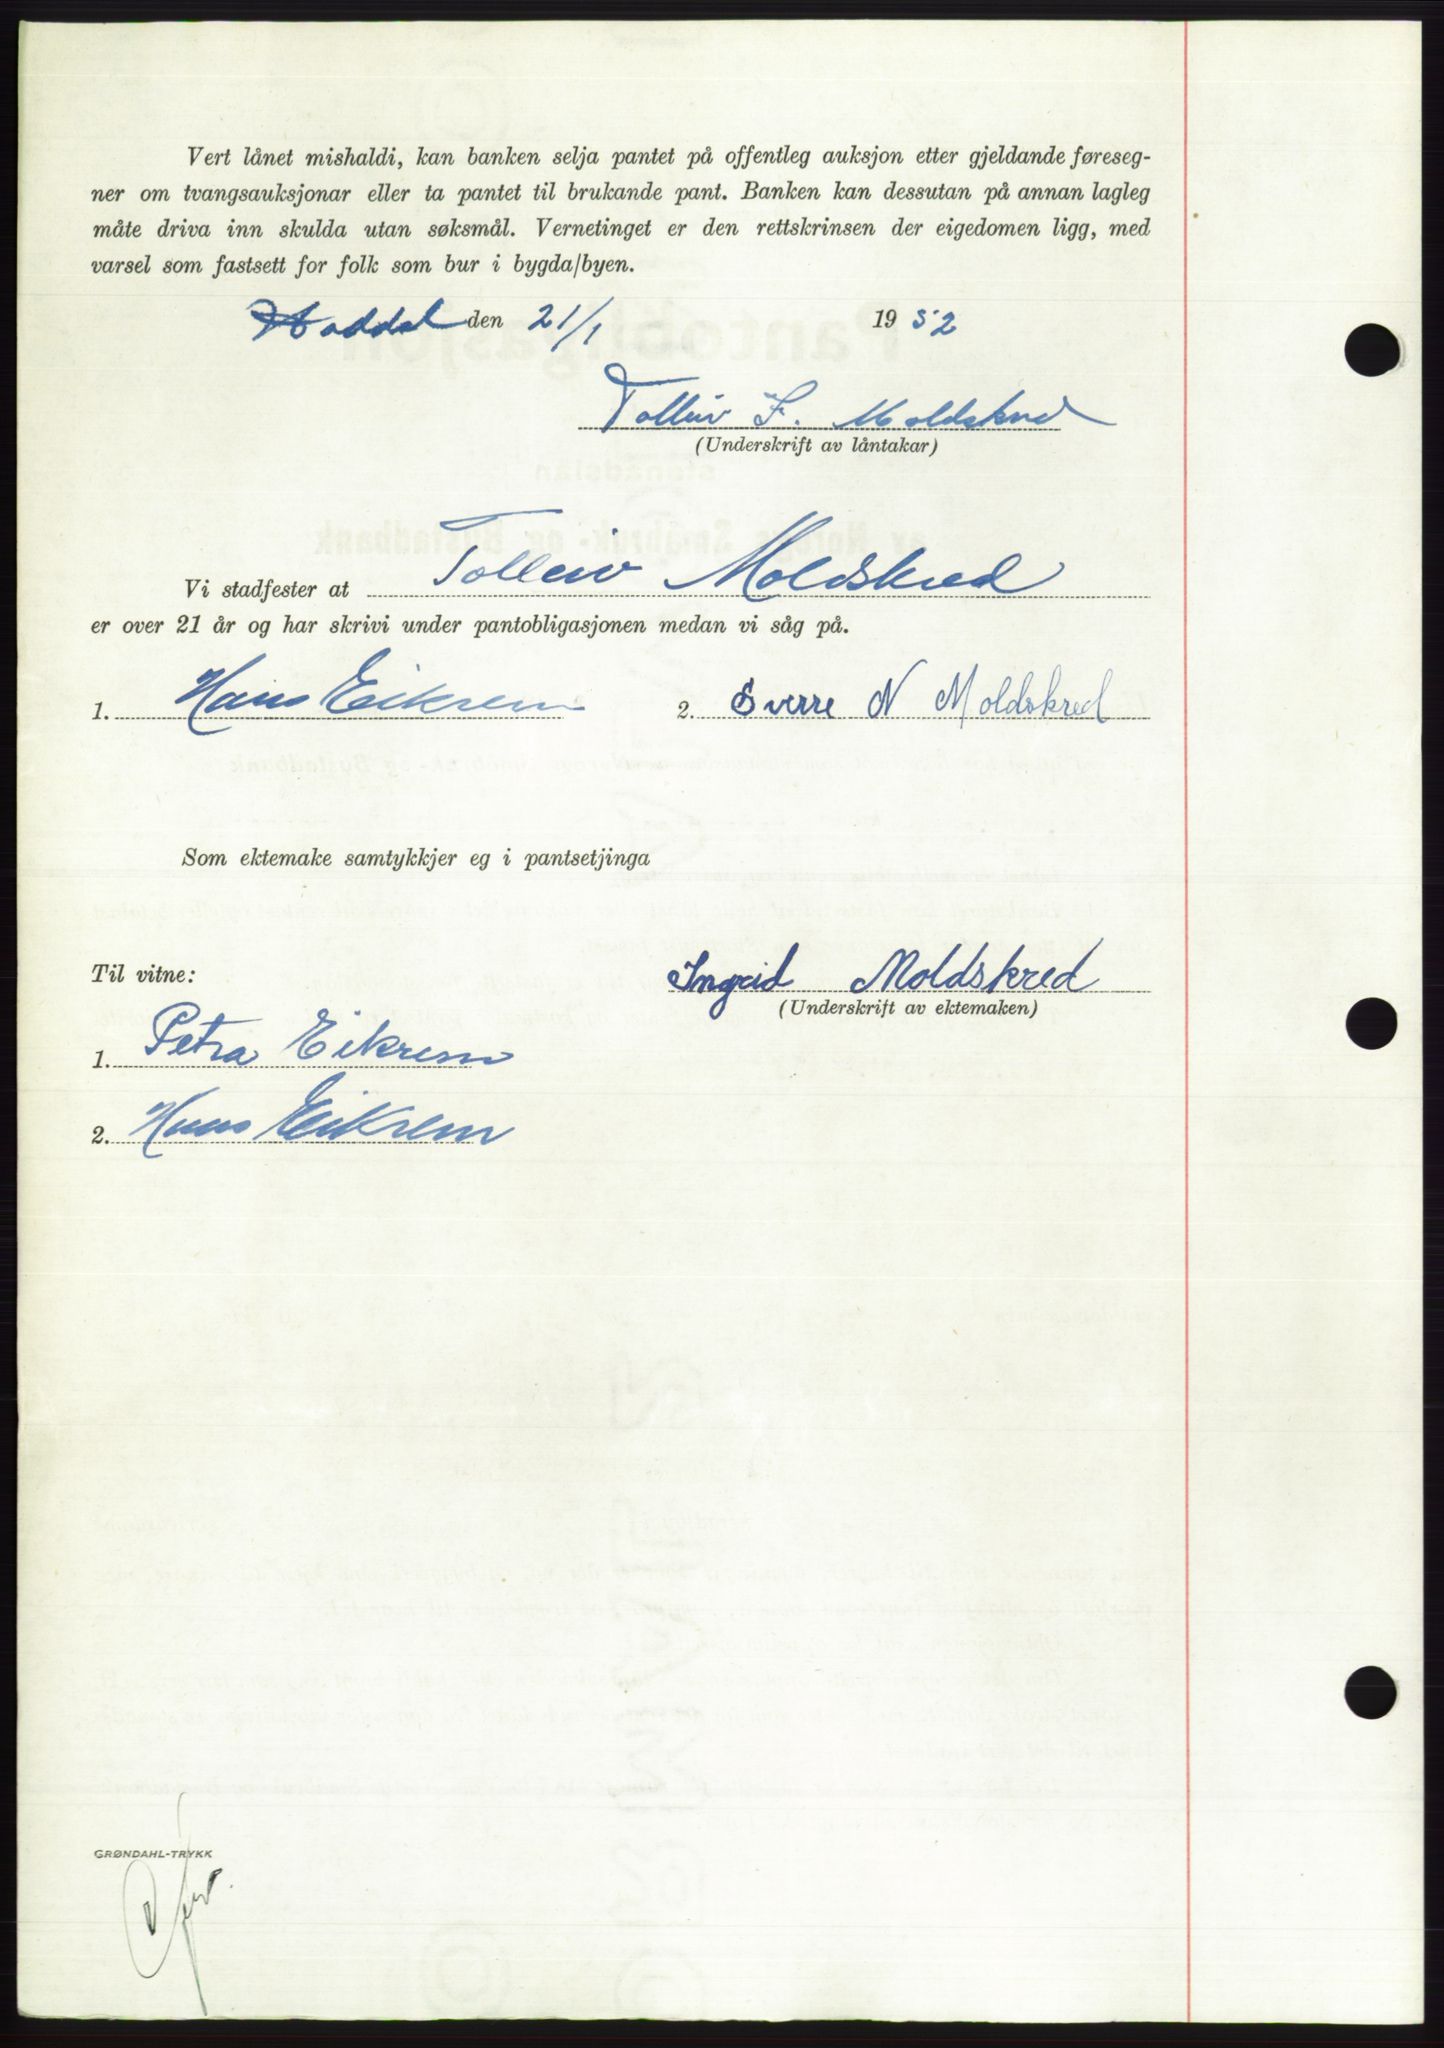 Vert lånet mishaldi, kan banken selja pantet på offentleg auksjon etter gjeldande føreseg-
ner om tvangsauksjonar eller ta pantet til brukande pant. Banken kan dessutan på annan lagleg
måte driva inn skulda utan søksmål. Vernetinget er den rettskrinsen der eigedomen ligg, med
varsel som fastsett for folk som bur i bygda/byen.
Haddal den 21/1 1952
Tolleiv F. Moldskred
(Underskrift av låntakar)
Vi stadfester at Tolleiv Moldskred
er over 21 år og har skrivi under pantobligasjonen medan vi såg på.
1. Hans Eikrem 2. Sverre N Moldskred
Som ektemake samtykkjer eg i pantsetjinga
Til vitne: Ingrid Moldskred
(Underskrift av ektemaken)
1. Petra Eikrem
2. Hans Eikrem
GRØNDAHL-TRYKK